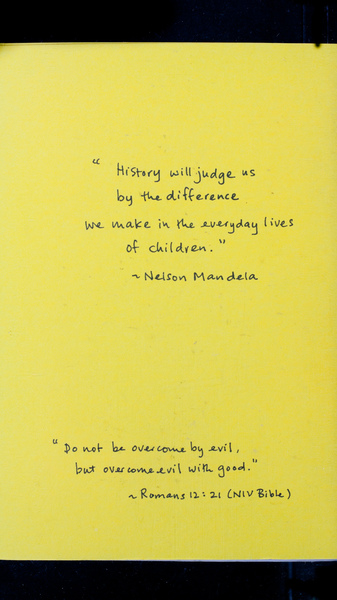 “ History will judge us
by the difference
we make in the everyday lives
of children.”
~ Nelson Mandela
“Do not be overcome by evil,
but overcome evil with good.”
~ Romans 12:21 (NIV Bible)